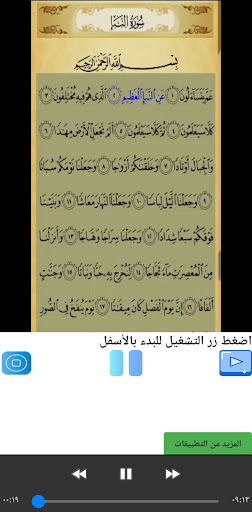 سورة النبإ
بسم الله الرحمن الرحيم
عَمَّ يَتَسَاءَلُونَ ١ عَنِ النَّبَإِ الْعَظِيمِ ٢ الَّذِي هُمْ فِيهِ مُخْتَلِفُونَ ٣
كَلَّا سَيَعْلَمُونَ ٤ ثُمَّ كَلَّا سَيَعْلَمُونَ ٥ أَلَمْ نَجْعَلِ الْأَرْضَ مِهَادًا ٦
وَالْجِبَالَ أَوْتَادًا ٧ وَخَلَقْنَاكُمْ أَزْوَاجًا ٨ وَجَعَلْنَا نَوْمَكُمْ سُبَاتًا
٩ وَجَعَلْنَا اللَّيْلَ لِبَاسًا ١٠ وَجَعَلْنَا النَّهَارَ مَعَاشًا ١١ وَبَنَيْنَا
فَوْقَكُمْ سَبْعًا شِدَادًا ١٢ وَجَعَلْنَا سِرَاجًا وَهَّاجًا ١٣ وَأَنْزَلْنَا
مِنَ الْمُعْصِرَاتِ مَاءً ثَجَّاجًا ١٤ لِنُخْرِجَ بِهِ حَبًّا وَنَبَاتًا ١٥ وَجَنَّاتٍ
أَلْفَافًا ١٦ إِنَّ يَوْمَ الْفَصْلِ كَانَ مِيقَاتًا ١٧ يَوْمَ يُنْفَخُ فِي الصُّورِ
اضغط زر التشغيل للبدء بالأسفل
المزيد من التطبيقات
٠٠:١٩
٠٩:١٣